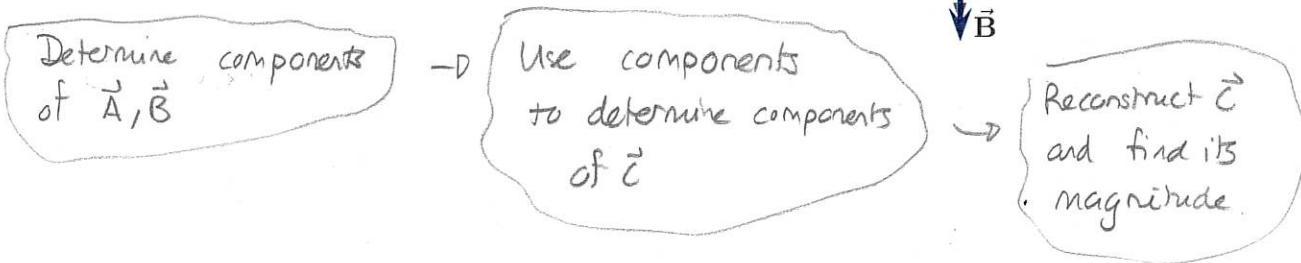 Determine components
of A⃗, B⃗
→
Use components
to determine components
of C⃗
B⃗
→
Reconstruct C⃗
and find its
magnitude.